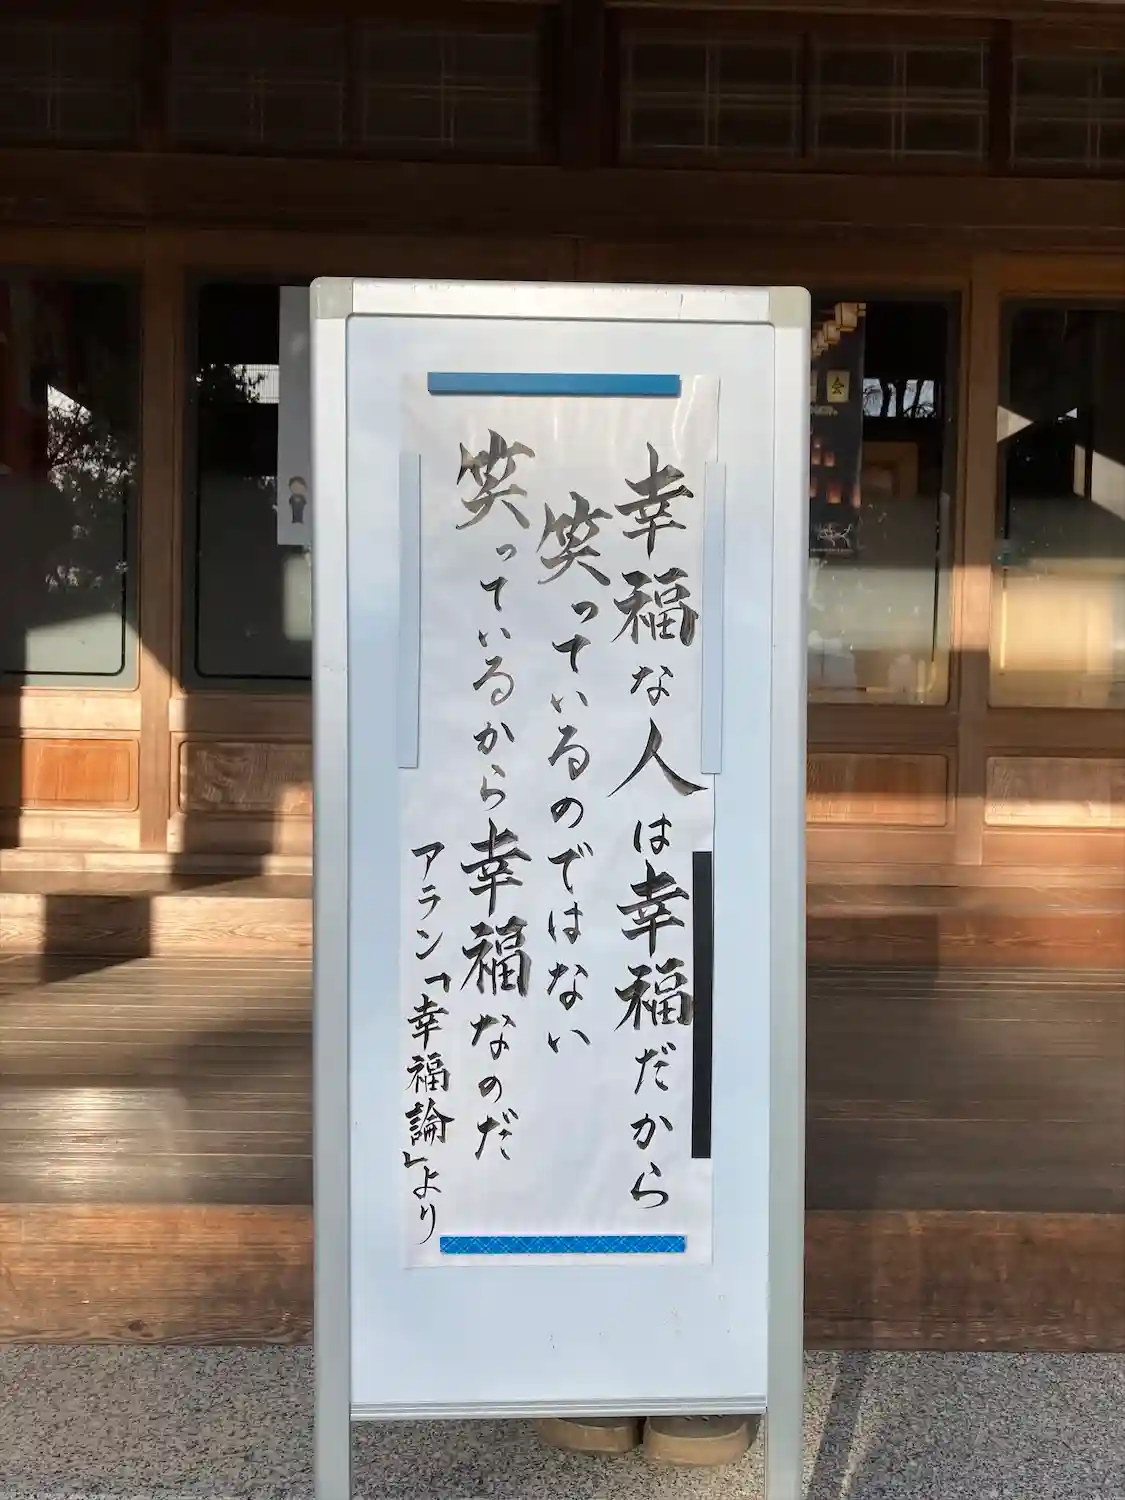 幸福な人は幸福だから
笑っているのではない
笑っているから幸福なのだ
アラン「幸福論」より
会